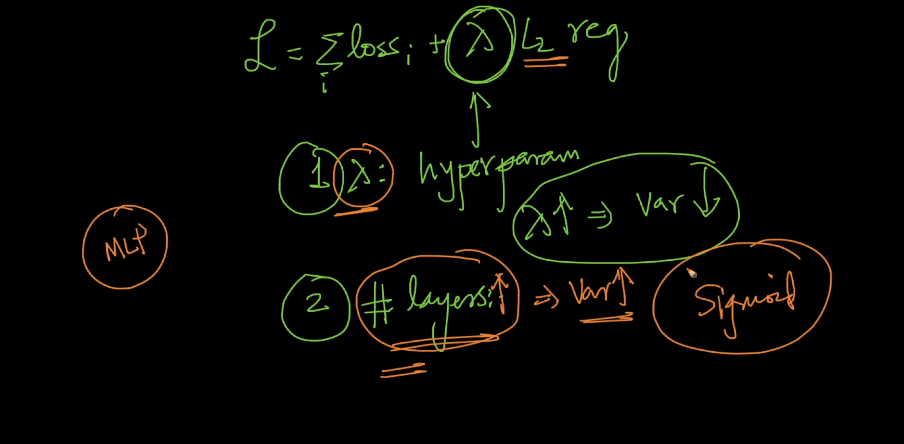 ℒ = Σ_i loss_i + λ L₂ reg
1 λ: hyperparam
λ↑ ⇒ Var ↓
MLP
2 # layers: ↑ ⇒ Var↑ Sigmoid